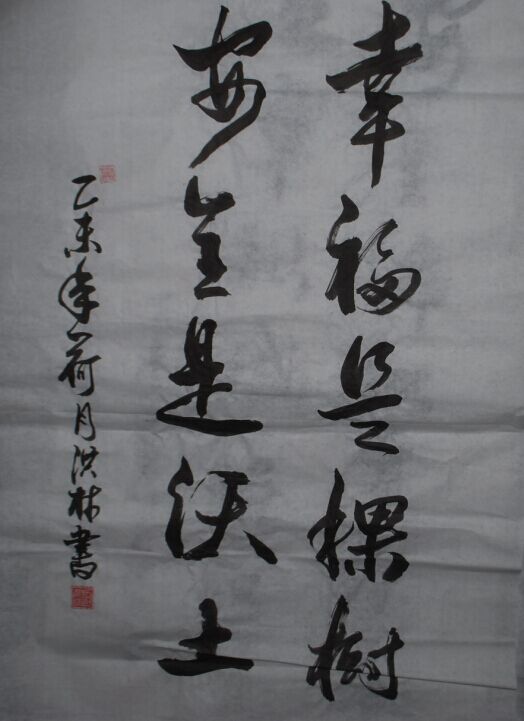 幸福是棵樹
安全是沃土
乙未年荷月洪林書